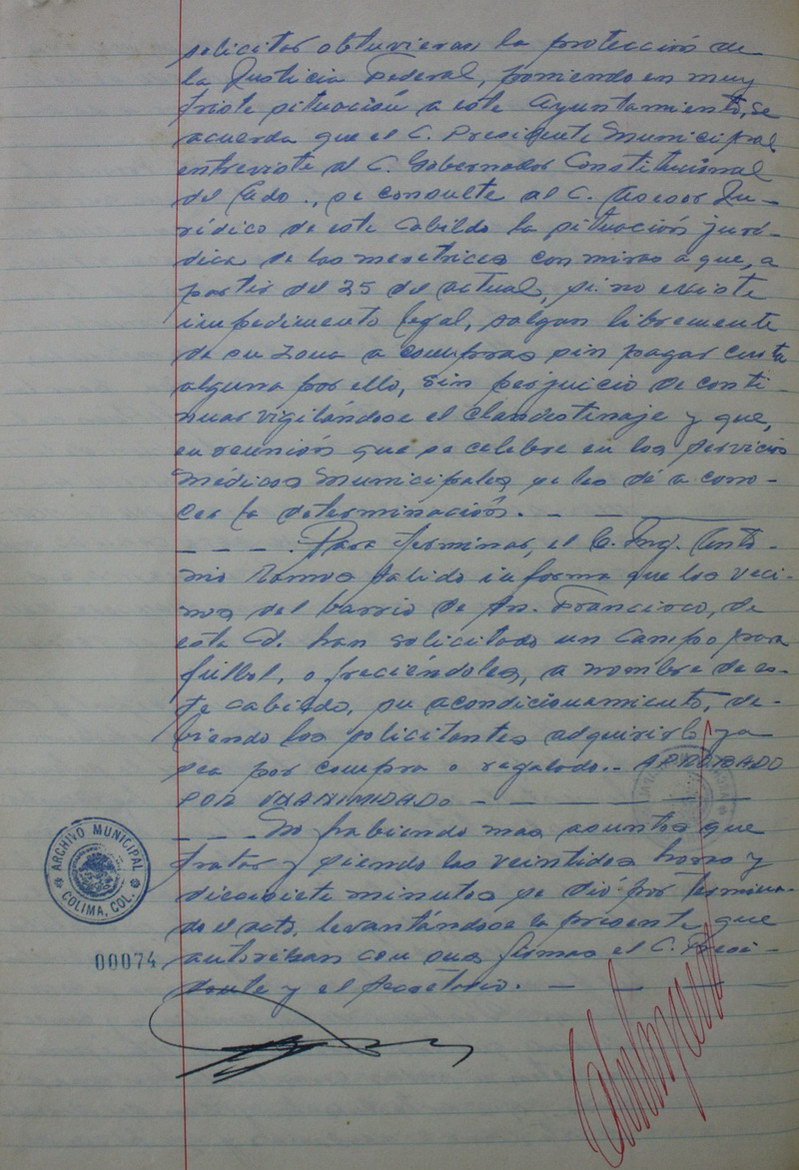 solicitar obtuvieran la protección de
la Justicia Federal, poniendo en muy
triste situación a este Ayuntamiento, se
acuerda que el C. Presidente Municipal
entreviste al C. Gobernador Constitucional
del Edo., se consulte al C. Asesor Ju-
rídico de este Cabildo la situación jurí-
dica de las meretrices con miras a que, a
partir del 25 del actual, si no existe
impedimento legal, salgan libremente
de su zona a compras sin pagar cuota
alguna por ello, sin perjuicio de conti-
nuar vigilándose el clandestinaje y que,
en reunión que se celebre en los Servicios
Médicos Municipales, se les dé a cono-
cer la determinación. - - -
- - - Para terminar, el C. Ing. Anto-
nio Ramos Salido informa que los veci-
nos del barrio de Sn. Francisco, de
esta Cd. han solicitado un campo para
fútbol, ofreciéndoles, a nombre de es-
te cabildo, su acondicionamiento, de-
biendo los solicitantes adquirirlo ya
sea por compra o regalado.- APROBADO
POR UNANIMIDAD - - -
- - - No habiendo mas asuntos que
tratar y siendo las veintidos horas y
diecisiete minutos se dió por termina-
do el acto, levantándose la presente que
autorizan con sus firmas el C. Presi-
dente y el Secretario. - - -
ARCHIVO MUNICIPAL
COLIMA, COL.
00074